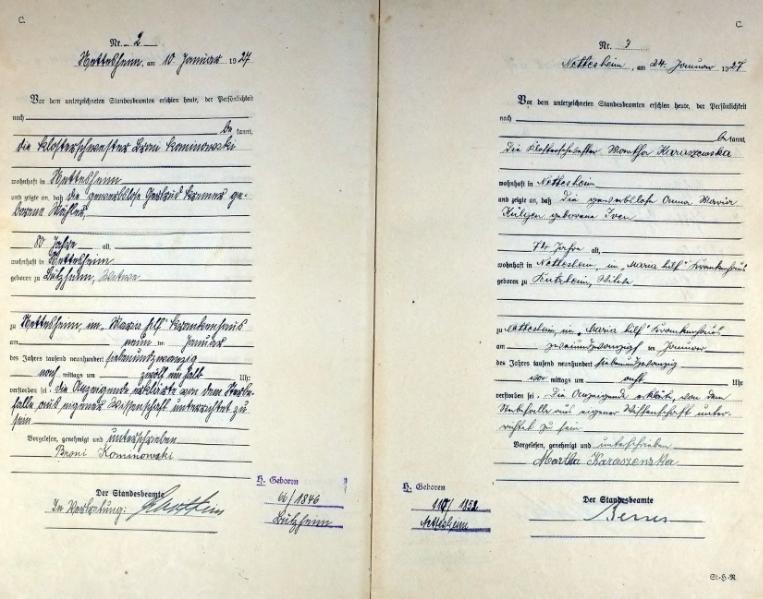 C.
Nr. 2
Nettesheim, am 10. Januar 1927
Vor dem unterzeichneten Standesbeamten erschien heute, der Persönlichkeit
nach
be kannt,
die Klosterschwester Broni Kominowski
wohnhaft in Nettesheim
und zeigte an, daß die gewerblose Gertrud Kremer ge-
borene
80 Jahre alt,
wohnhaft in Nettesheim
geboren zu Bützheim, Witwe
zu Nettesheim, im "Maria hilf" Krankenhaus
am neun ten Januar
des Jahres tausend neunhundert siebenundzwanzig
nach mittags um zwölf ein halb Uhr
verstorben sei. die Anzeigende erklärte von dem Sterbe-
falle aus eigener Wissenschaft unterrichtet zu
sein
Vorgelesen, genehmigt und unterschrieben
Broni Kominowski
Der Standesbeamte
In Vertretung:
H. Geboren
66/1846
Bützheim
C.
Nr. 3
Nettesheim, am 24. Januar 1927
Vor dem unterzeichneten Standesbeamten erschien heute, der Persönlichkeit
nach
be kannt,
die Klosterschwester Martha Karaszewska
wohnhaft in Nettesheim
und zeigte an, daß die gewerblose Anna Maria
geborene Iven
74 Jahre alt,
wohnhaft in Nettesheim, im "Maria hilf" Krankenhaus
geboren zu
zu Nettesheim, im "Maria hilf" Krankenhaus
am zweiundzwanzigsten Januar
des Jahres tausend neunhundert siebenundzwanzig
vor mittags um acht Uhr
verstorben sei. Die Anzeigende erklärte, von dem
Sterbefalle aus eigener Wissenschaft unter-
richtet zu sein
Vorgelesen, genehmigt und unterschrieben
Martha Karaszewska
H. Geboren
110/1852
Nettesheim
Der Standesbeamte
St-H-R.